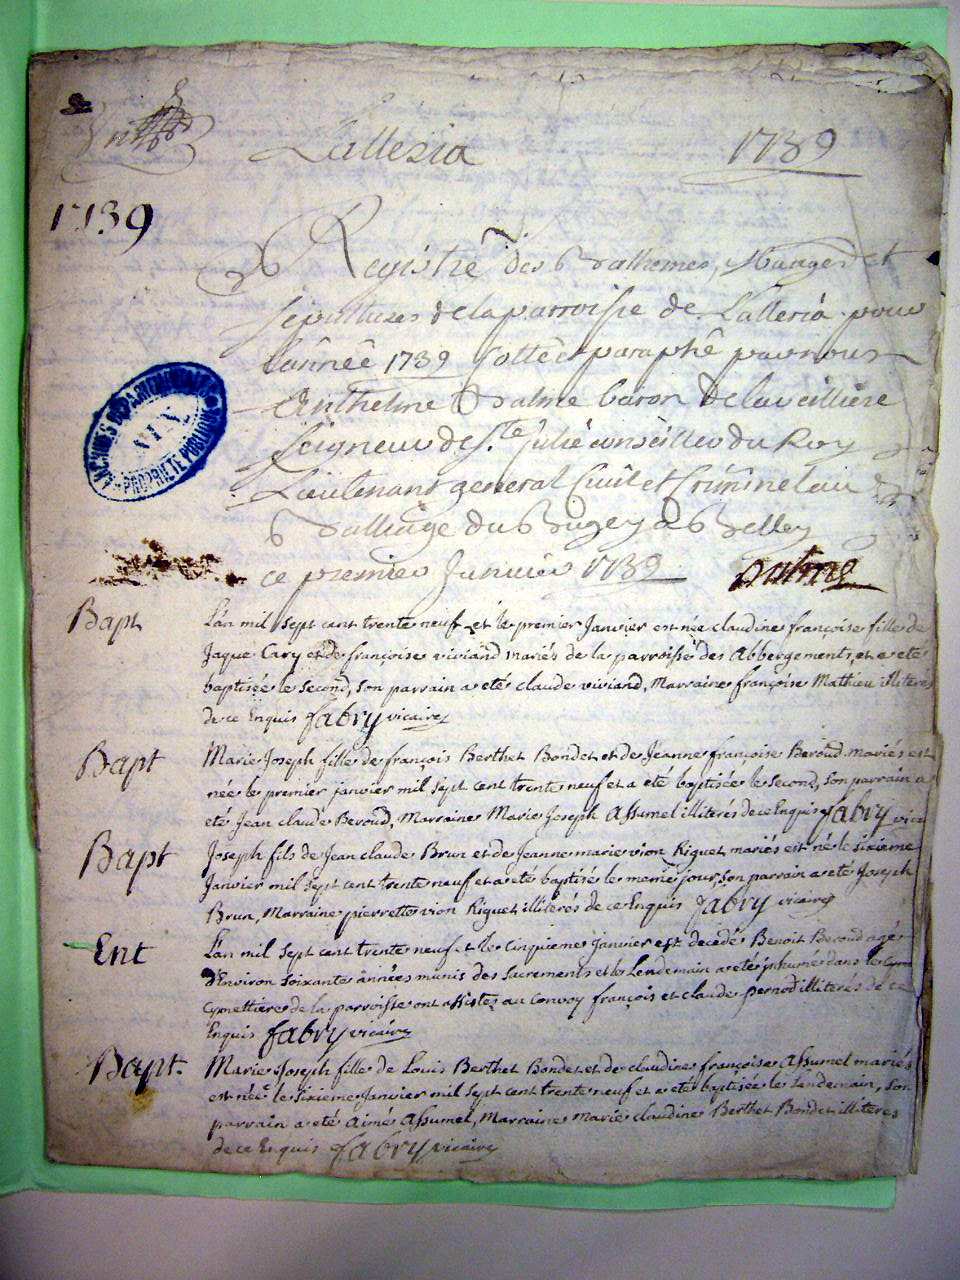 Lalleria 1739
1739
Registre des Bathemes, Mariages et
sepultures de la parroisse de Lalleria pour
l'année 1739 Cotté et paraphé par nous
Anthelme Balme baron de la veilliere
seigneur de Ste Julie conseiller du Roy
Lieutenant general Civil et Criminel au
Balliage du Bugey a Belley
ce premier Janvier 1739 Balme
ARCHIVES DEPARTEMENTALES
AIN
PROPRIETE PUBLIQUE
Bapt L'an mil sept cent trente neuf et le premier Janvier est née claudine françoise fille de
Jaque Cary et de françoise viviand mariés de la parroisse des Abbergements, et a eté
baptisée le second, son parrain a eté claude viviand, Marraine françoise Mathieu illiterés
de ce Enquis fabry vicaire
Bapt Marie Joseph fille de françois Berthet Bondet et de Jeanne françoise Beroud mariés est
née le premier janvier mil sept cent trente neuf et a eté baptisée le second, son parrain a
eté Jean claude Beroud, Marraine Marie Joseph Assumel illiterés de ce Enquis fabry vicai
Bapt Joseph fils de Jean claude Brun et de Jeanne marie vion Riguet mariés est né le sixieme
Janvier mil sept cent trente neuf et a eté baptisé le meme jour, son parrain a eté Joseph
Brun, Marraine pierrette vion Riguet illiterés de ce Enquis fabry vicaire
Ent L'an mil sept cent trente neuf et le Cinquieme Janvier est decedé Benoit Beroud agé
d'Environ soixante années munis des sacrements et le Lendemain a eté inhumé dans le
cymettiere de la parroisse ont assistés au convoy françois et claude pernod illiterés de ce
Enquis fabry vicaire
Bapt. Marie Joseph fille de Louis Berthet Bondet et de claudine françoise Assumel mariés
est née le sixieme Janvier mil sept cent trente neuf et a eté baptisée le Lendemain, son
parrain a eté Aimé Assumel, Marraine Marie claudine Berthet Bondet illiteres
de ce Enquis fabry vicaire